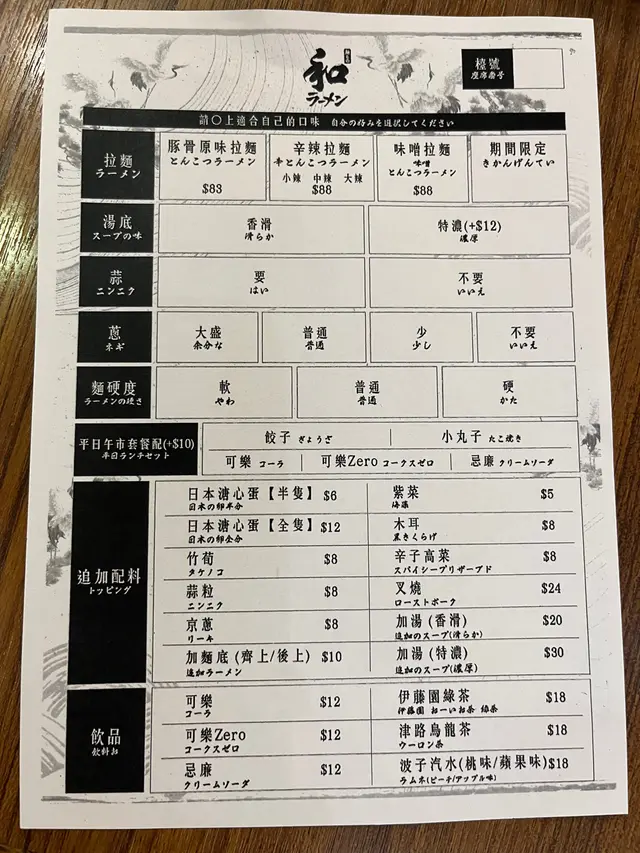 和
ラーメン
檯號
座席番号
請〇上適合自己的口味 自分の好みを選択してください
拉麵
ラーメン
豚骨原味拉麵
とんこつラーメン
$83
辛辣拉麵
辛とんこつラーメン
小辣 中辣 大辣
$88
味噌拉麵
味噌
とんこつラーメン
$88
期間限定
きかんげんてい
湯底
スープの味
香滑
清らか
特濃(+$12)
濃厚
蒜
ニンニク
要
はい
不要
いいえ
蔥
ネギ
大盛
余分な
普通
普通
少
少し
不要
いいえ
麵硬度
ラーメンの硬さ
軟
やわ
普通
普通
硬
かた
平日午市套餐配(+$10)
平日ランチセット
餃子 ぎょうざ
小丸子 たこ焼き
可樂 コーラ
可樂Zero コークスゼロ
忌廉 クリームソーダ
追加配料
トッピング
日本溏心蛋【半隻】 $6
日本の卵半分
日本溏心蛋【全隻】 $12
日本の卵全分
竹筍 $8
タケノコ
蒜粒 $8
ニンニク
京蔥 $8
リーキ
加麵底 (齊上/後上) $10
追加ラーメン
紫菜 $5
海藻
木耳 $8
黒きくらげ
辛子高菜 $8
スパイシープリザーブド
叉燒 $24
ローストポーク
加湯 (香滑) $20
追加のスープ(清らか)
加湯 (特濃) $30
追加のスープ(濃厚)
飲品
飲料お
可樂 $12
コーラ
可樂Zero $12
コークスゼロ
忌廉 $12
クリームソーダ
伊藤園綠茶 $18
伊藤園 おーいお茶 綠茶
津路烏龍茶 $18
ウーロン茶
波子汽水(桃味/蘋果味) $18
ラムネ(ピーチ/アップル味)